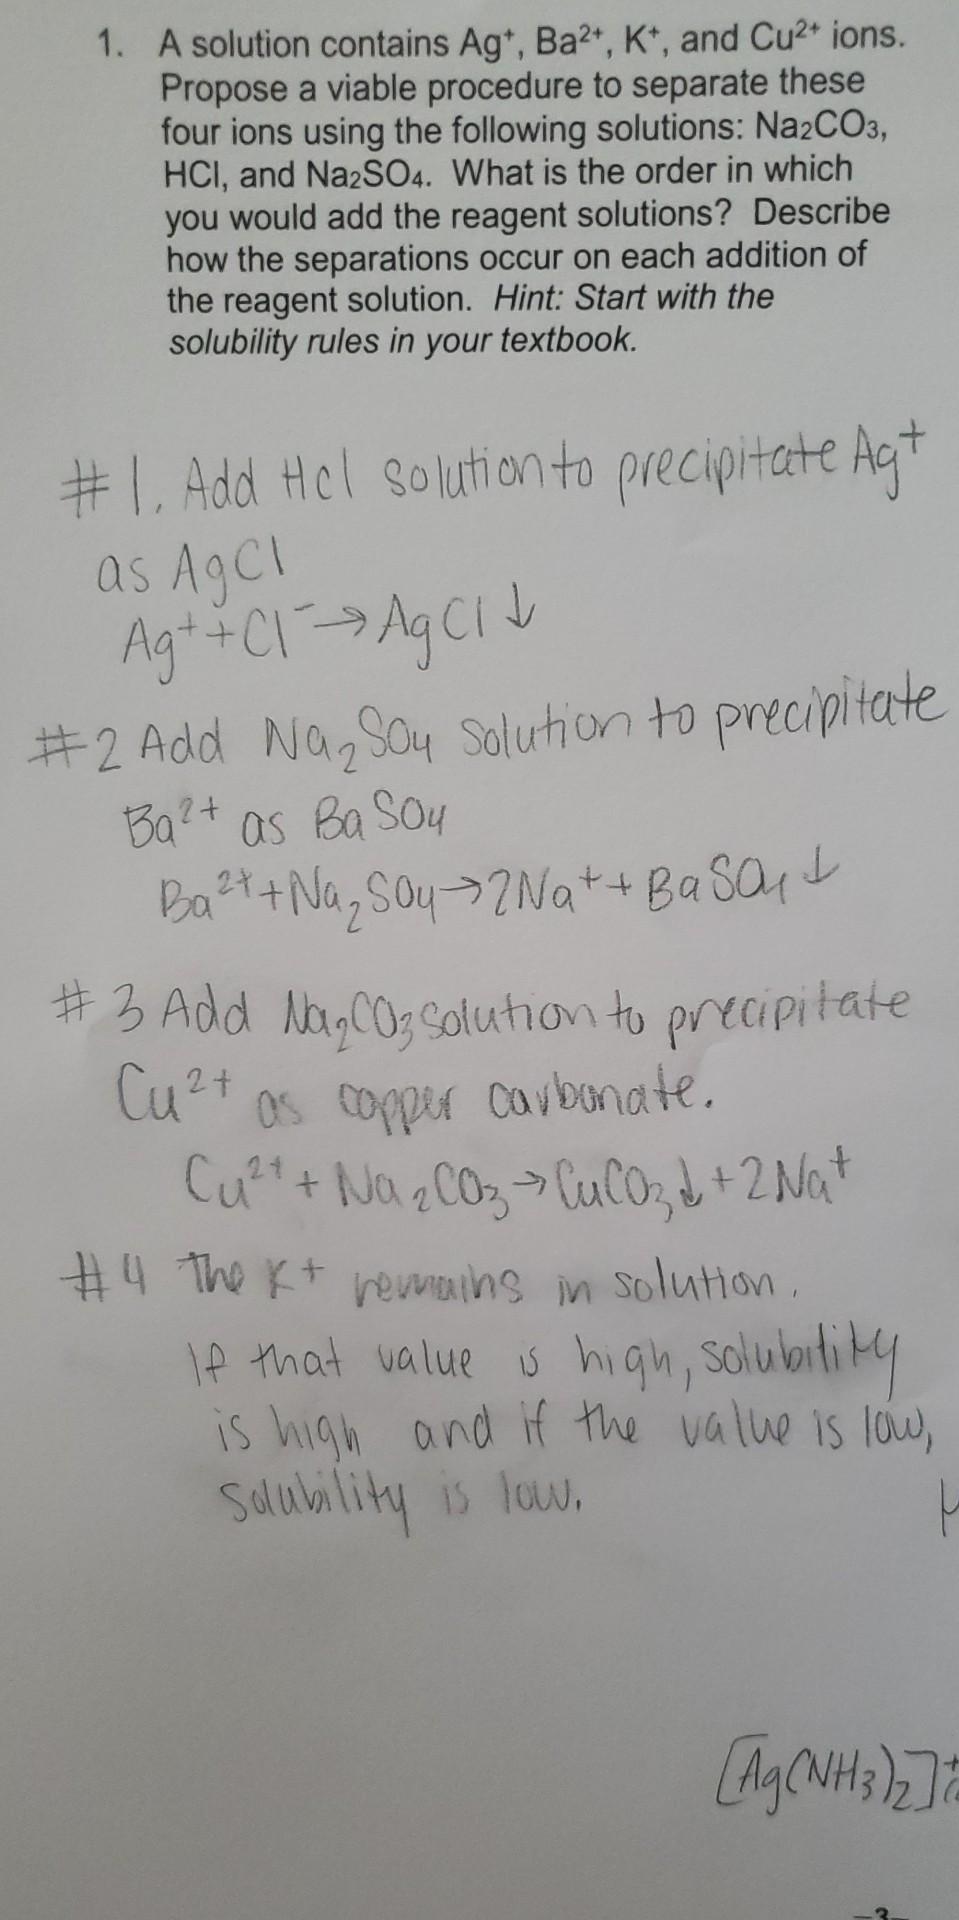 1. A solution contains Ag⁺, Ba²⁺, K⁺, and Cu²⁺ ions.
Propose a viable procedure to separate these
four ions using the following solutions: Na₂CO₃,
HCl, and Na₂SO₄. What is the order in which
you would add the reagent solutions? Describe
how the separations occur on each addition of
the reagent solution. Hint: Start with the
solubility rules in your textbook.
#1. Add Hcl solution to precipitate Ag⁺
as AgCl
Ag⁺+Cl⁻→AgCl↓
#2 Add Na₂SO₄ solution to precipitate
Ba²⁺ as BaSO₄
Ba²⁺+Na₂SO₄→2Na⁺+BaSO₄↓
#3 Add Na₂CO₃ solution to precipitate
Cu²⁺ as copper carbonate.
Cu²⁺+Na₂CO₃→CuCO₃↓+2Na⁺
#4 The K+ remains in solution.
If that value is high, solubility
is high and if the value is low,
solubility is low.
[Ag(NH₃)₂]⁺
-3-